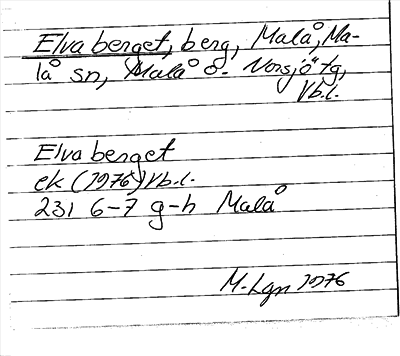 Elvaberget, berg, Malå, Ma-
lå sn, Malå o. Norsjö tg,
Vb.l.
Elvaberget
ek (1976) Vb.l.
231 6-7 g-h Malå
M. Lgn 1976